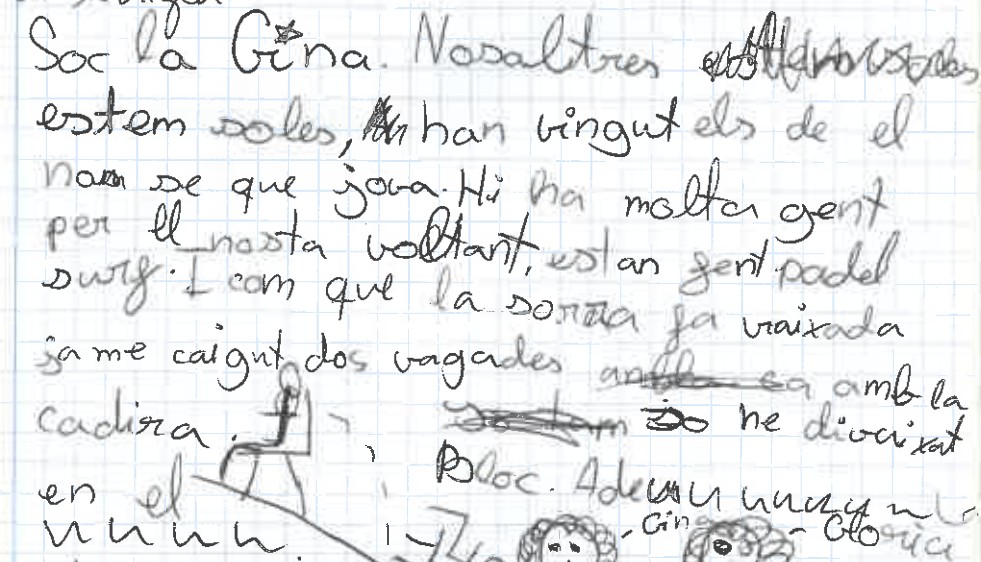 Soc la Gina. Nosaltres
estem soles, han vingut els de el
nom se que jova. Hi ha molta gent
per ll nosta voltant, estan fent padel
surf. I com que la sorra fa vaixada
ja me caigut dos vagades amb la
cadira. he divaixat
en el Bloc. Adeuuu uuuuu
uuuu.
Gina Gloria